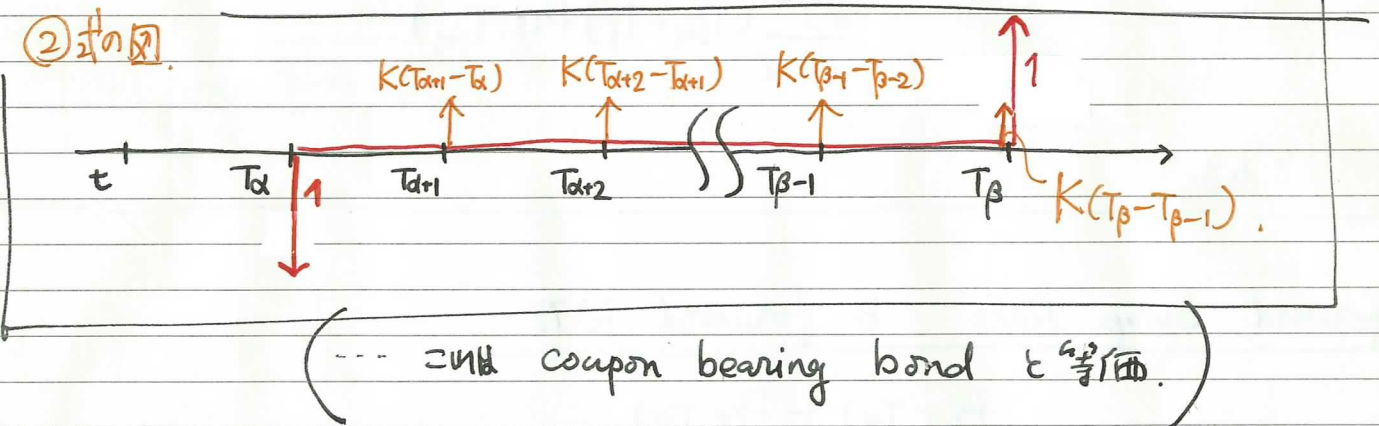 ② 式の図.
K(Tα+1-Tα) K(Tα+2-Tα+1) K(Tβ-1-Tβ-2) 1
t Tα 1 Tα+1 Tα+2 Tβ-1 Tβ K(Tβ-Tβ-1).
(---- これは coupon bearing bond と等価.)